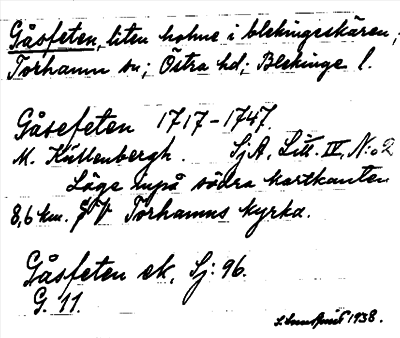 Gåsfeten, liten holme i blekingeskären;
Torhamn sn; Östra hd; Blekinge l.
Gåsefeten 1717-1747.
M. Källenbergh. SjA, Litt. IV, N:o 2
Läge uppå södra kartkanten
8,6 km. SV Torhamns kyrka.
Gåsfeten ek. Sj: 96.
G. 11.
1938.